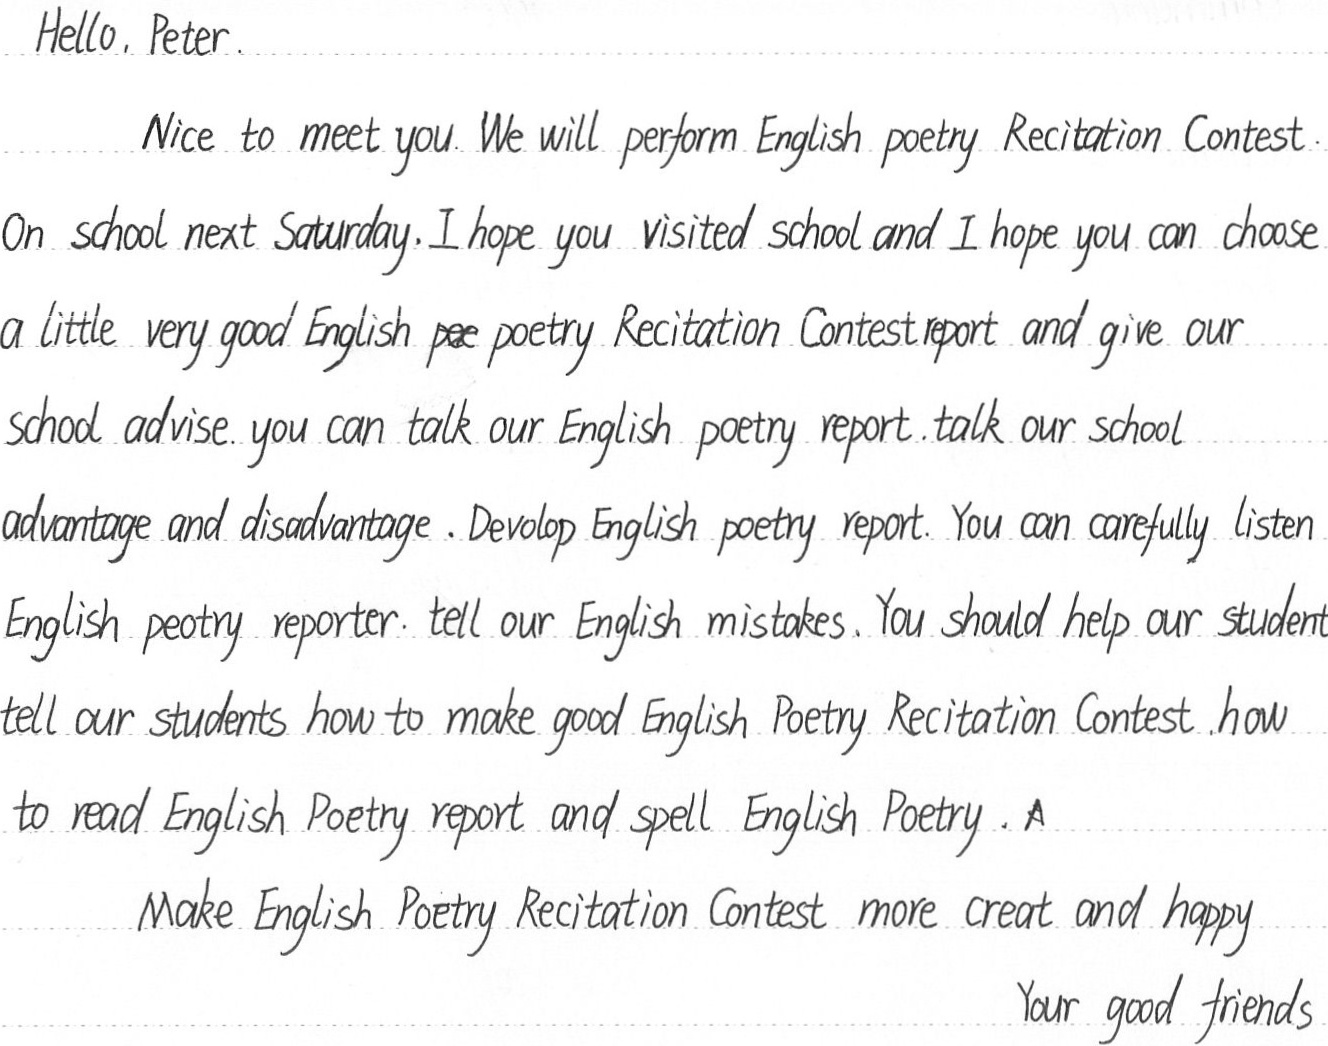 Hello, Peter.
Nice to meet you. We will perform English poetry Recitation Contest.
On school next Saturday. I hope you visited school and I hope you can choose
a little very good English poetry Recitation Contest report and give our
school advise. you can talk our English poetry report. talk our school
advantage and disadvantage. Devolop English poetry report. You can carefully listen
English peotry reporter. tell our English mistakes. You should help our student
tell our students how to make good English Poetry Recitation Contest. how
to read English Poetry report and spell English Poetry. A
Make English Poetry Recitation Contest more creat and happy
Your good friends